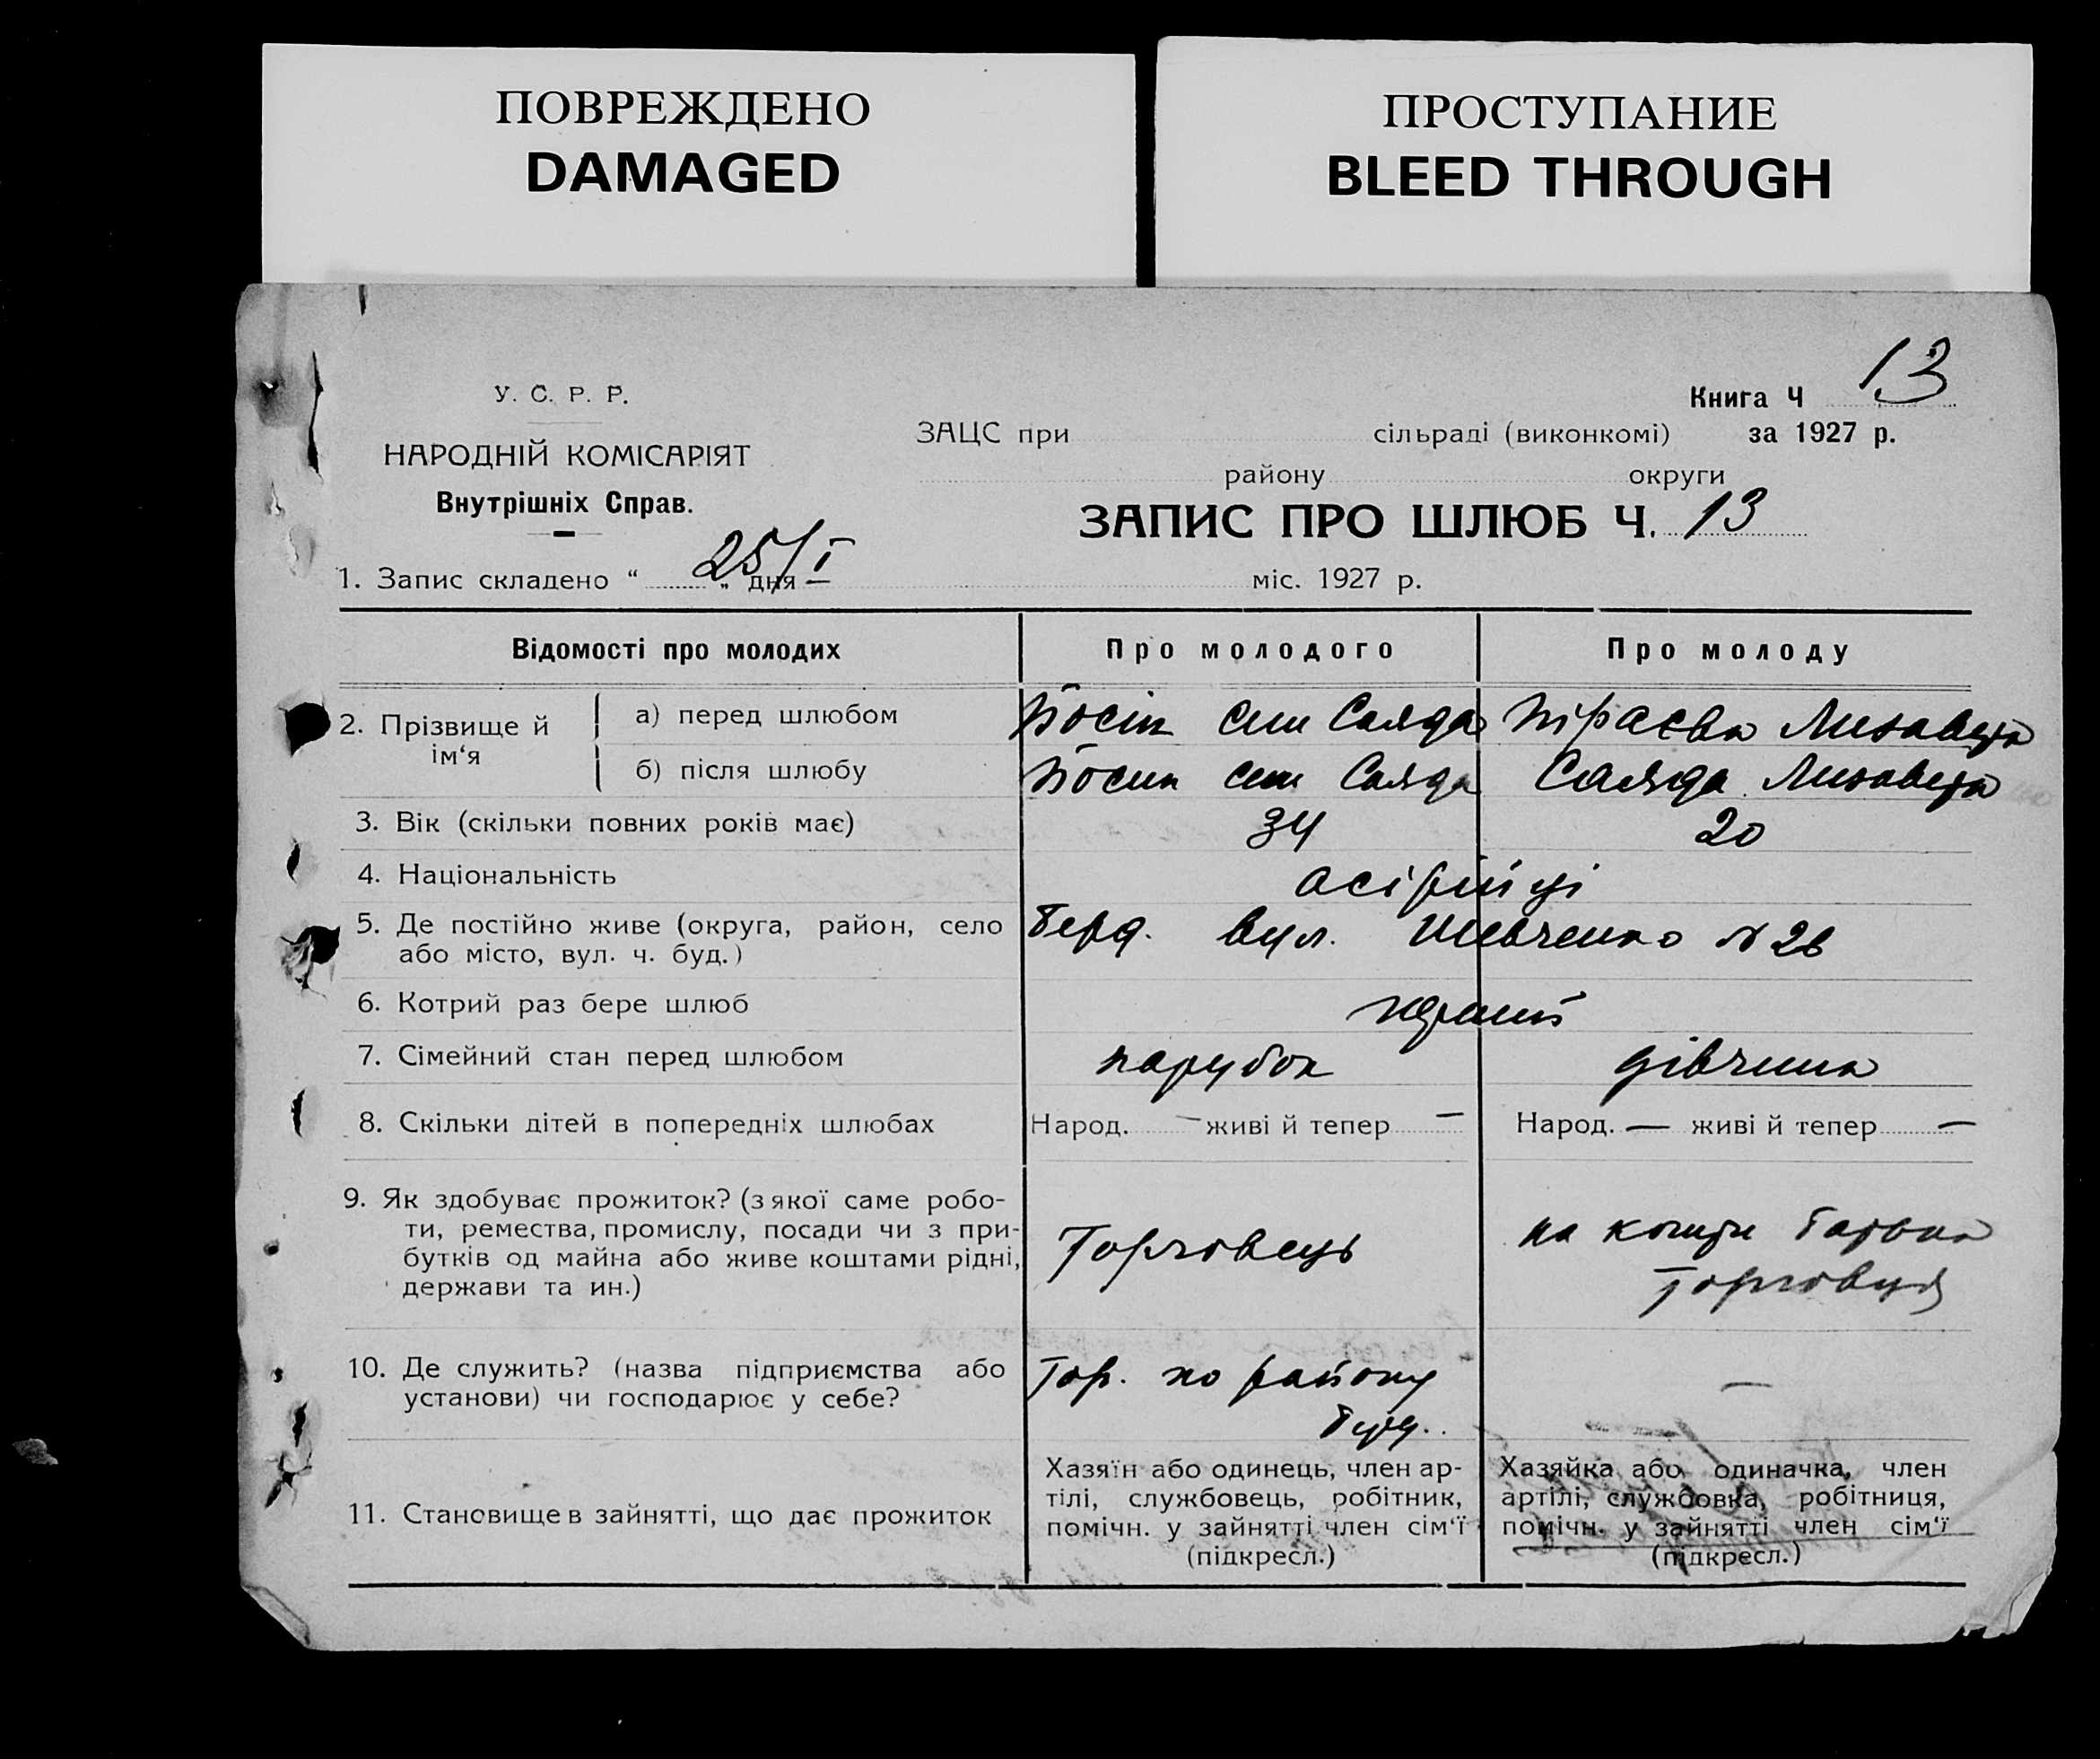 ПОВРЕЖДЕНО
DAMAGED
ПРОСТУПАНИЕ
BLEED THROUGH
У. С. Р. Р.
НАРОДНІЙ КОМІСАРІЯТ
Внутрішніх Справ.
Книга Ч 13
ЗАЦС при сільраді (виконкомі) за 1927 р.
району округи
ЗАПИС ПРО ШЛЮБ Ч. 13
1. Запис складено “ 25/I „ дня міс. 1927 р.
Відомості про молодих Про молодого Про молоду
2. Прізвище й ім‘я
а) перед шлюбом Саяда Лизавета
б) після шлюбу Саяда Саяда Лизавета
3. Вік (скільки повних років має) 34 20
4. Національність асірійці
5. Де постійно живе (округа, район, село Берд. вул. Шевченко № 26
або місто, вул. ч. буд.)
6. Котрий раз бере шлюб перший
7. Сімейний стан перед шлюбом парубок дівчина
8. Скільки дітей в попередніх шлюбах Народ. — живі й тепер — Народ. — живі й тепер —
9. Як здобуває прожиток? (з якої саме робо-
ти, ремества, промислу, посади чи з при- Торговець на кошти батька
бутків од майна або живе коштами рідні, торговця
держави та ин.)
10. Де служить? (назва підприємства або Тор. по району —
установи) чи господарює у себе?
11. Становище в зайнятті, що дає прожиток
Хазяїн або одинець, член ар-
тілі, службовець, робітник,
помічн. у зайнятті член сім‘ї
(підкресл.)
Хазяйка або одиначка, член
артілі, службовка, робітниця,
помічн. у зайнятті член сім‘ї
(підкресл.)